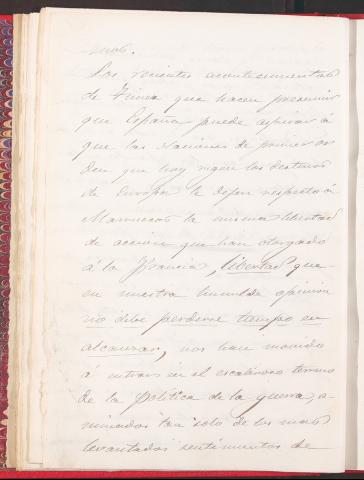 mos.
Los recientes acontecimientos
de Túnez que hacen presumir
que España puede aspirar á
que las Naciones de primer or
den que hoy rigen los destinos
de Europa le dejen respecto á
Marruecos la misma libertad
de acción que han otorgado
á la Francia, libertad que
en nuestra humilde opinión
no debe perderse tiempo en
alcanzar, nos han movido
á entrar en el escabroso terreno
de la política de la guerra, a-
nimados tan solo de los mas
levantados sentimientos de